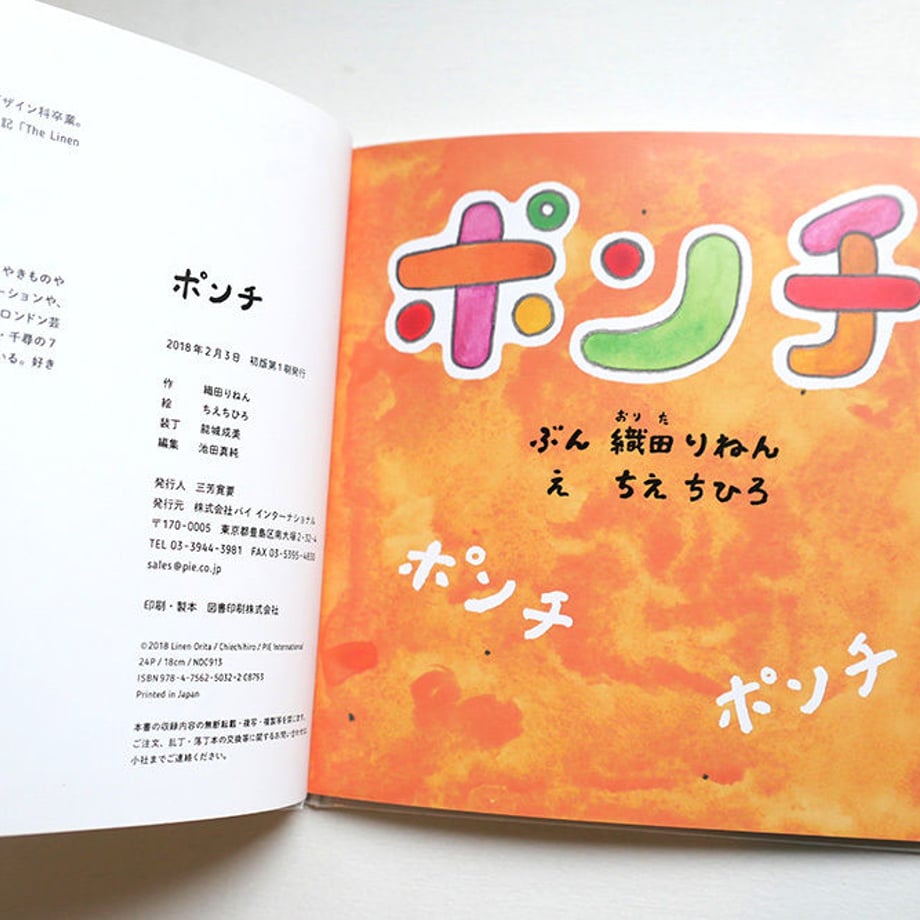 ザイン科卒業。
記「The Linen
やきものや
ーションや、
ロンドン芸
・千尋の7
いる。好き
ポンチ
2018年2月3日 初版第1刷発行
作 織田りねん
絵 ちえちひろ
装丁 能城成美
編集 池田真純
発行人 三芳寛要
発行元 株式会社パイ インターナショナル
〒170-0005 東京都豊島区南大塚2-32-4
TEL 03-3944-3981 FAX 03-5395-4830
sales@pie.co.jp
印刷・製本 図書印刷株式会社
©2018 Linen Orita / Chiechihiro / PIE International
24P / 18cm / NDC913
ISBN978-4-7562-5032-2 C8793
Printed in Japan
本書の収録内容の無断転載・複写・複製等を禁じます。
ご注文、乱丁・落丁本の交換等に関するお問い合わせは、
小社までご連絡ください。
ポンチ
おりた
ぶん 織田りねん
え ちえちひろ
ポンチ
ポンチ